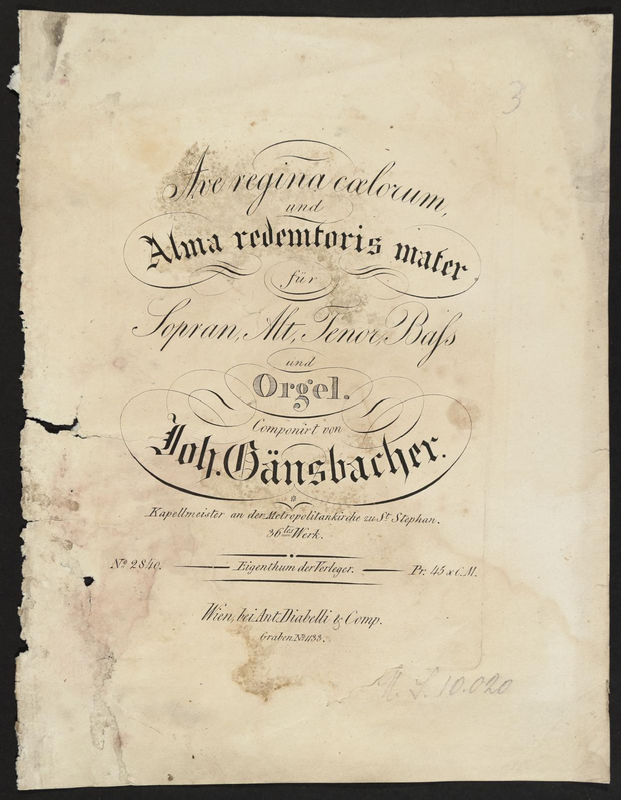 3
Ave regina cœlorum,
und
Alma redemtoris mater
für
Sopran, Alt, Tenor, Baſs
und
Orgel.
Componirt von
Joh. Gänsbacher.
Kapellmeister an der Metropolitankirche zu St. Stephan.
36tes Werk.
No. 2840. Eigenthum der Verleger. Pr. 45 x C.M.
Wien, bei Ant. Diabelli & Comp.
Graben No. 1133.
10.020